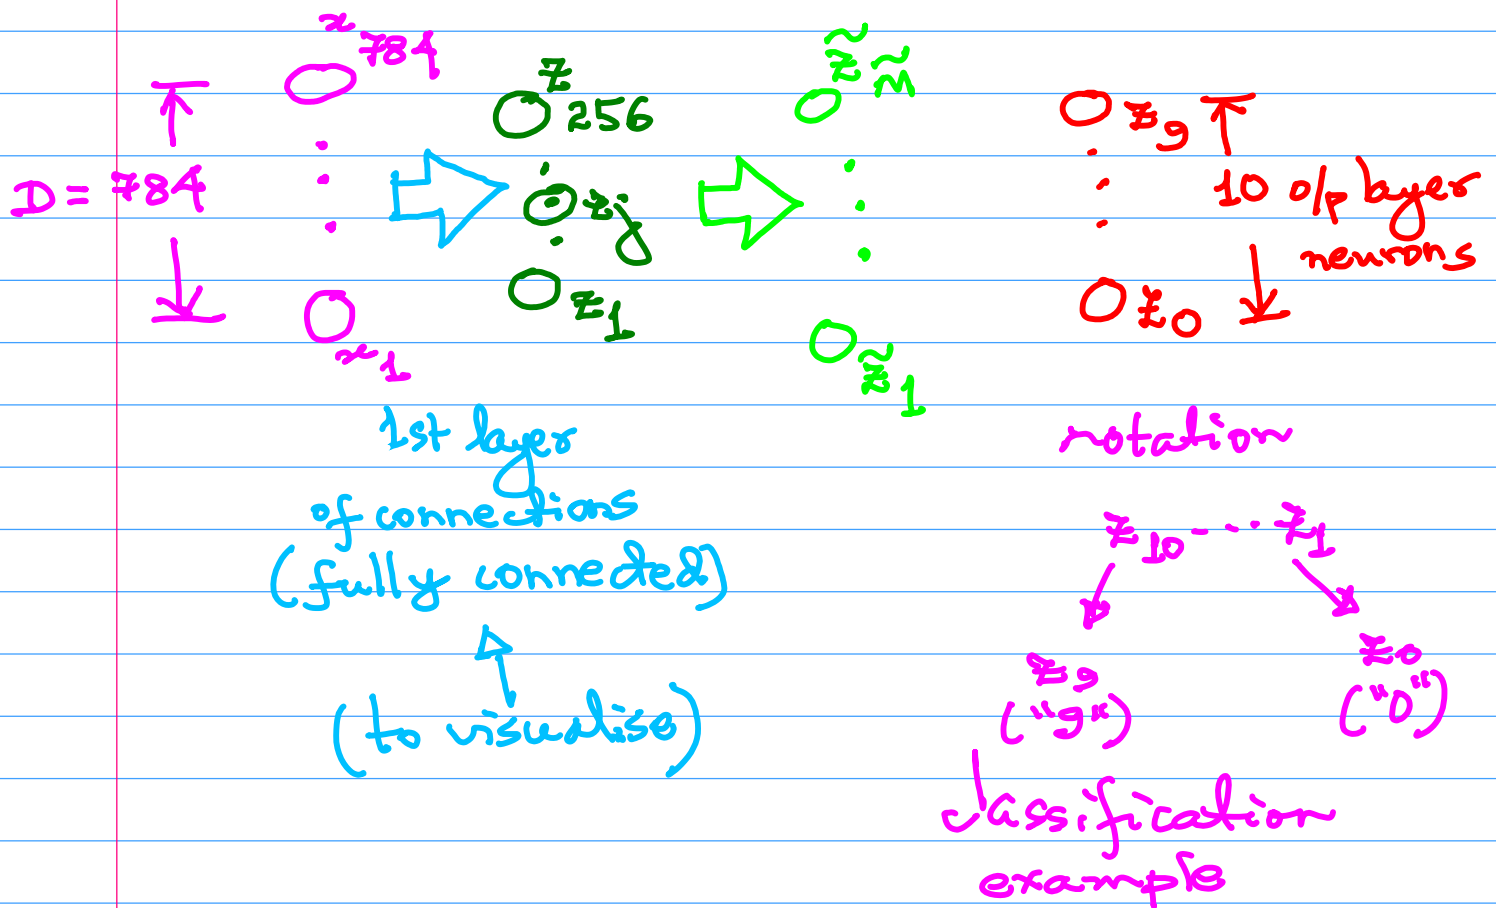 x 784
z 256
z̃ m̃
z 9
D = 784
z j
10 o/p layer
neurons
z 1
z 0
x 1
z̃ 1
1st layer
of connections
(fully connected)
(to visualise)
notation
z 10 ---- z 1
z 9
("9")
z 0
("0")
classification
example